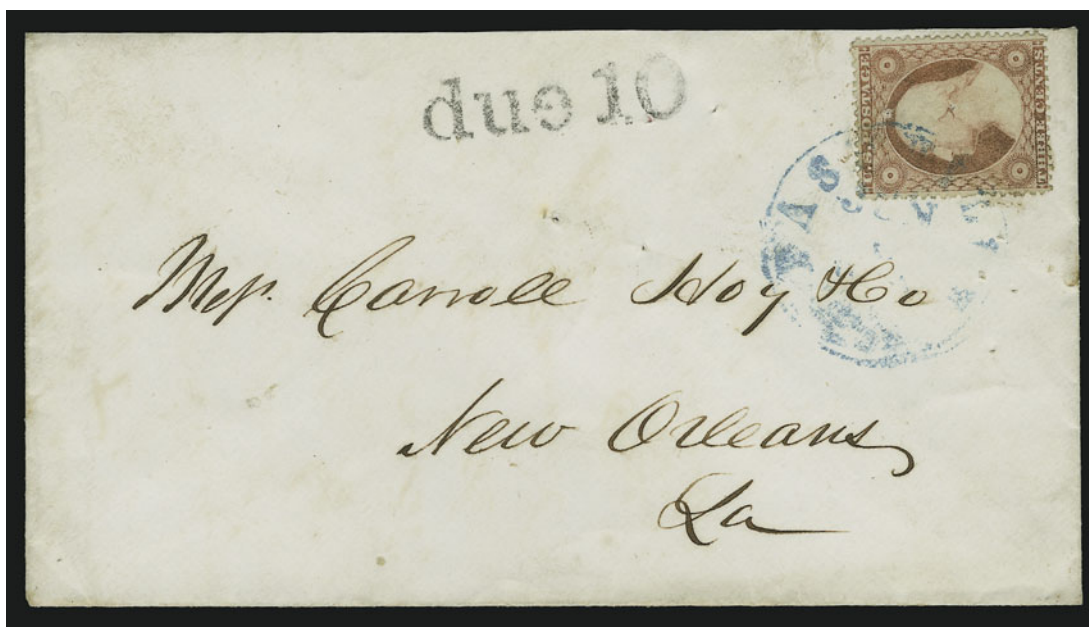 due 10
U.S. POSTAGE
THREE CENTS
NASH
Carroll Hoy & Co
New Orleans
La